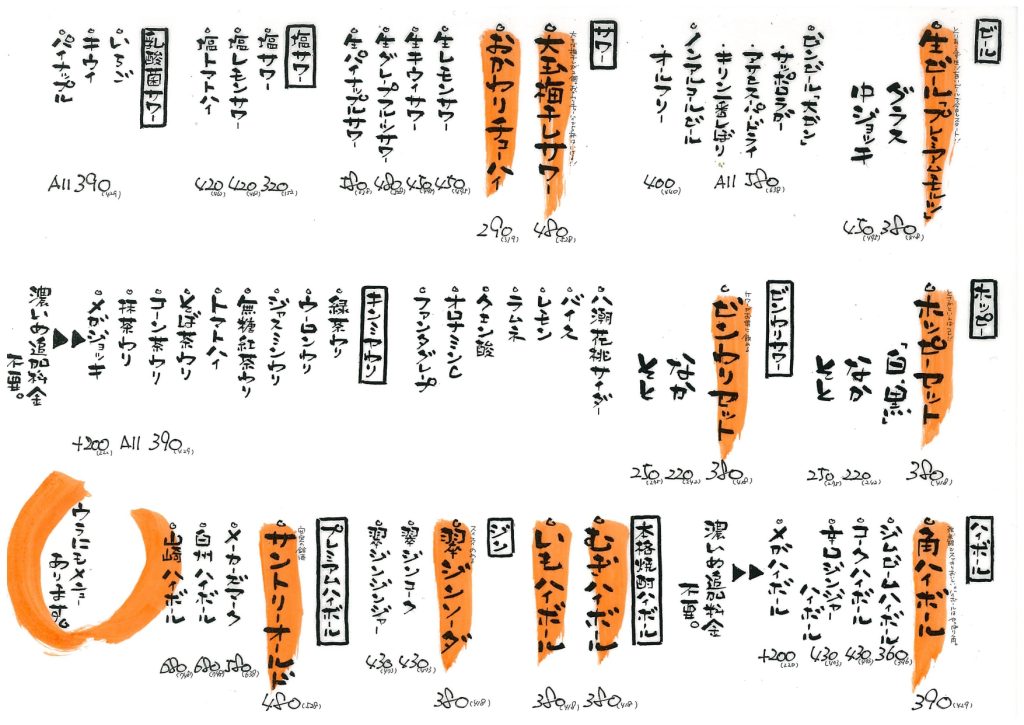 ビール
生ビール「プレミアムモルツ」
グラス 380(418)
中ジョッキ 450(495)
ビンビール「大ビン」
・サッポロラガー
・アサヒスーパードライ
・キリン一番しぼり
All 580(638)
・ノンアルコールビール
・オールフリー
400(440)
サワー
大玉梅干しサワー
480(528)
おかわりチューハイ
290(319)
生レモンサワー 450(495)
生キウイサワー 450(495)
生グレープフルーツサワー 480(528)
生パイナップルサワー 580(638)
塩サワー
塩サワー 320(352)
塩レモンサワー 420(462)
塩トマトハイ 420(462)
乳酸菌サワー
いちご
キウイ
パイナップル
All 390(429)
ホッピー
ホッピーセット
380(418)
「白、黒」
なか 220(242)
そと 250(275)
ビンワリサワー
ビンワリセット
380(418)
なか 220(242)
そと 250(275)
八潮花桃サイダー
バイス
レモン
ラムネ
クエン酸
オロナミンC
ファンタグレープ
キンミヤワリ
緑茶ワリ
ウーロンワリ
ジャスミンワリ
無糖紅茶ワリ
トマトハイ
そば茶ワリ
コーン茶ワリ
抹茶ワリ
All 390(429)
メガジョッキ
+200(220)
▶▶濃いめ追加料金
不要。
ハイボール
角ハイボール
390(429)
ジムビームハイボール 360(396)
コークハイボール 430(473)
辛口ジンジャー
ハイボール 430(473)
メガハイボール +200(220)
▶▶濃いめ追加料金
不要。
本格焼酎ハイボール
むぎハイボール 380(418)
いもハイボール 380(418)
ジン
翠ジンソーダ
380(418)
翠ジンコーク 430(473)
翠ジンジンジャー 430(473)
プレミアムハイボール
サントリーオールド
480(528)
メーカーズマーク 580(638)
白州ハイボール 680(748)
山崎ハイボール 680(748)
ウラにもメニュー
あります。